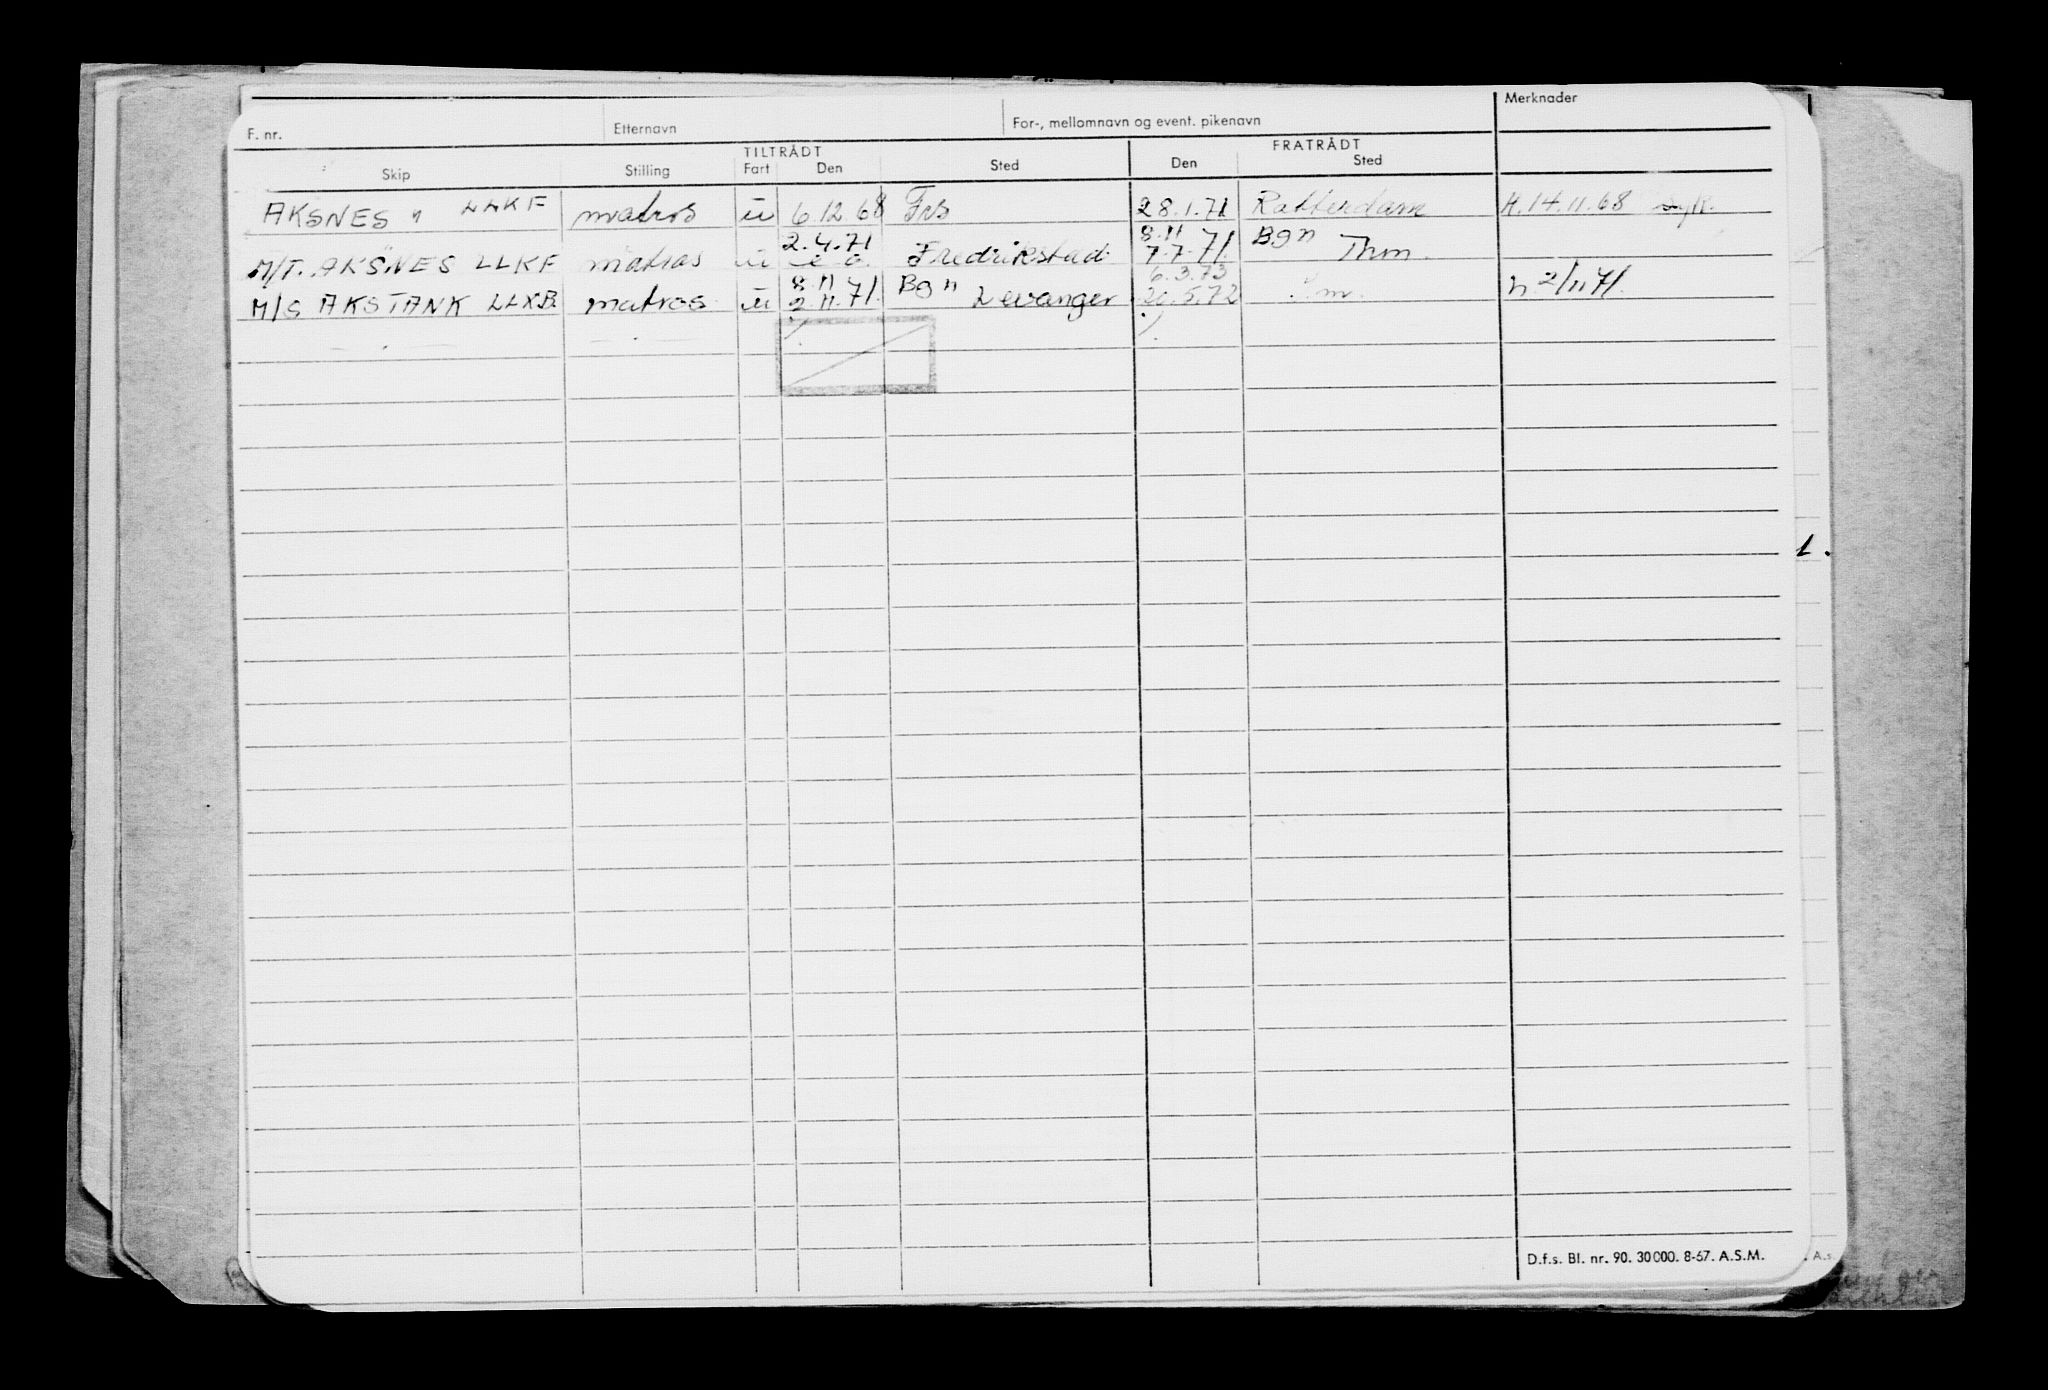 F. nr. Etternavn For-, mellomnavn og event. pikenavn Merknader
TILTRÅDT FRATRÅDT
Skip Stilling Fart Den Sted Den Sted
AKSNES LLKF matros u 6.12.68 28.1.71 Rotterdam H.14.11.68
2.4.71 8.11 Bgn
M/T. AKSNES LLKF matros u Fredrikstad 7.7.71. Thm.
8.11 71. Bgn 6.3.73
M/S AKSTANK LLXB matros u 2.11.71. Levanger 20.5.72 n 2/11 71.
1.
D.f.s. Bl. nr. 90. 30 000. 8-67. A.S.M.